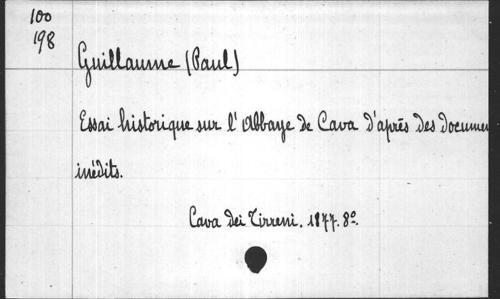 100
198
Guillaume (Paul)
Essai historique sur l'Abbaye de Cava d'après des documen
inédits.
Cava dei Tirreni. 1877. 8º.